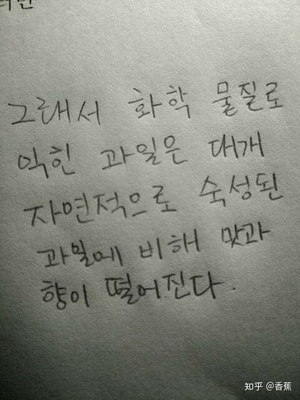 그래서 화학 물질로
익힌 과일은 대개
자연적으로 숙성된
과일에 비해 맛과
향이 떨어진다.
知乎 @香蕉